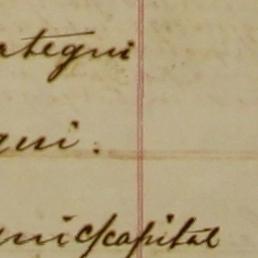 ategui
gui.
guic/capital